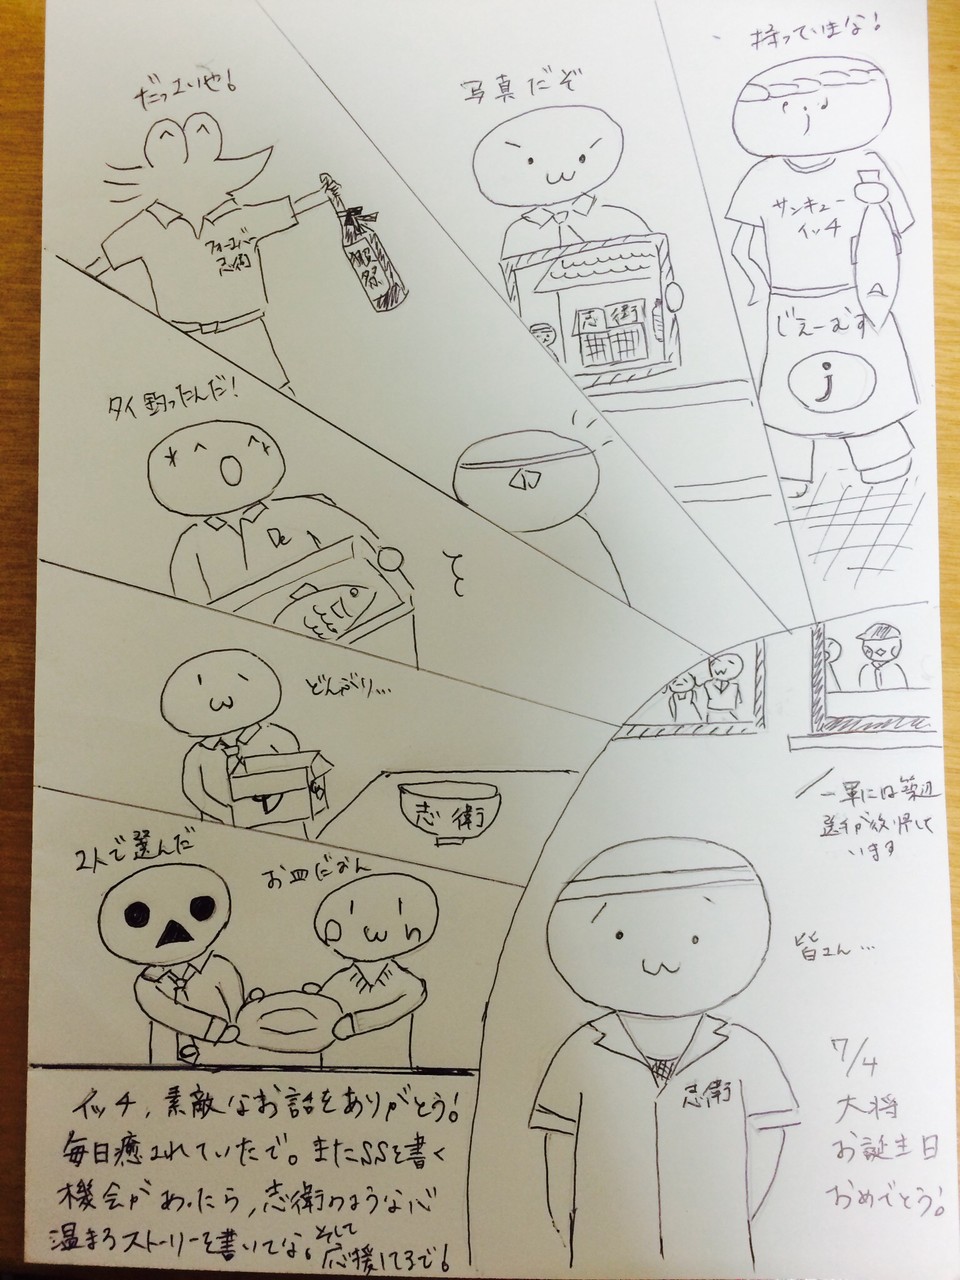 だっエいや!
フォーエバー
志衛
獺祭
写真だぞ
志衛
持っていまな!
サンキュー
イッチ
じえーむす
j
タイ釣ったんだ!
De
どんがり…
志衛
2人で選んだ
お皿だおん
一軍には築辺
選手が放帰して
います
皆さん…
7/4
大将
お誕生日
おめでとう!
志衛
イッチ、素敵なお話をありがとう!
毎日癒されていたで。またSSを書く
機会があったら、志衛のような心
温まるストーリーを書いてな。そして
応援してるで!